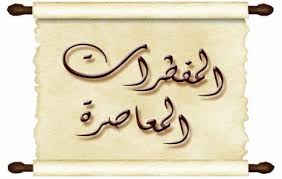 المفطرات
المعاصرة